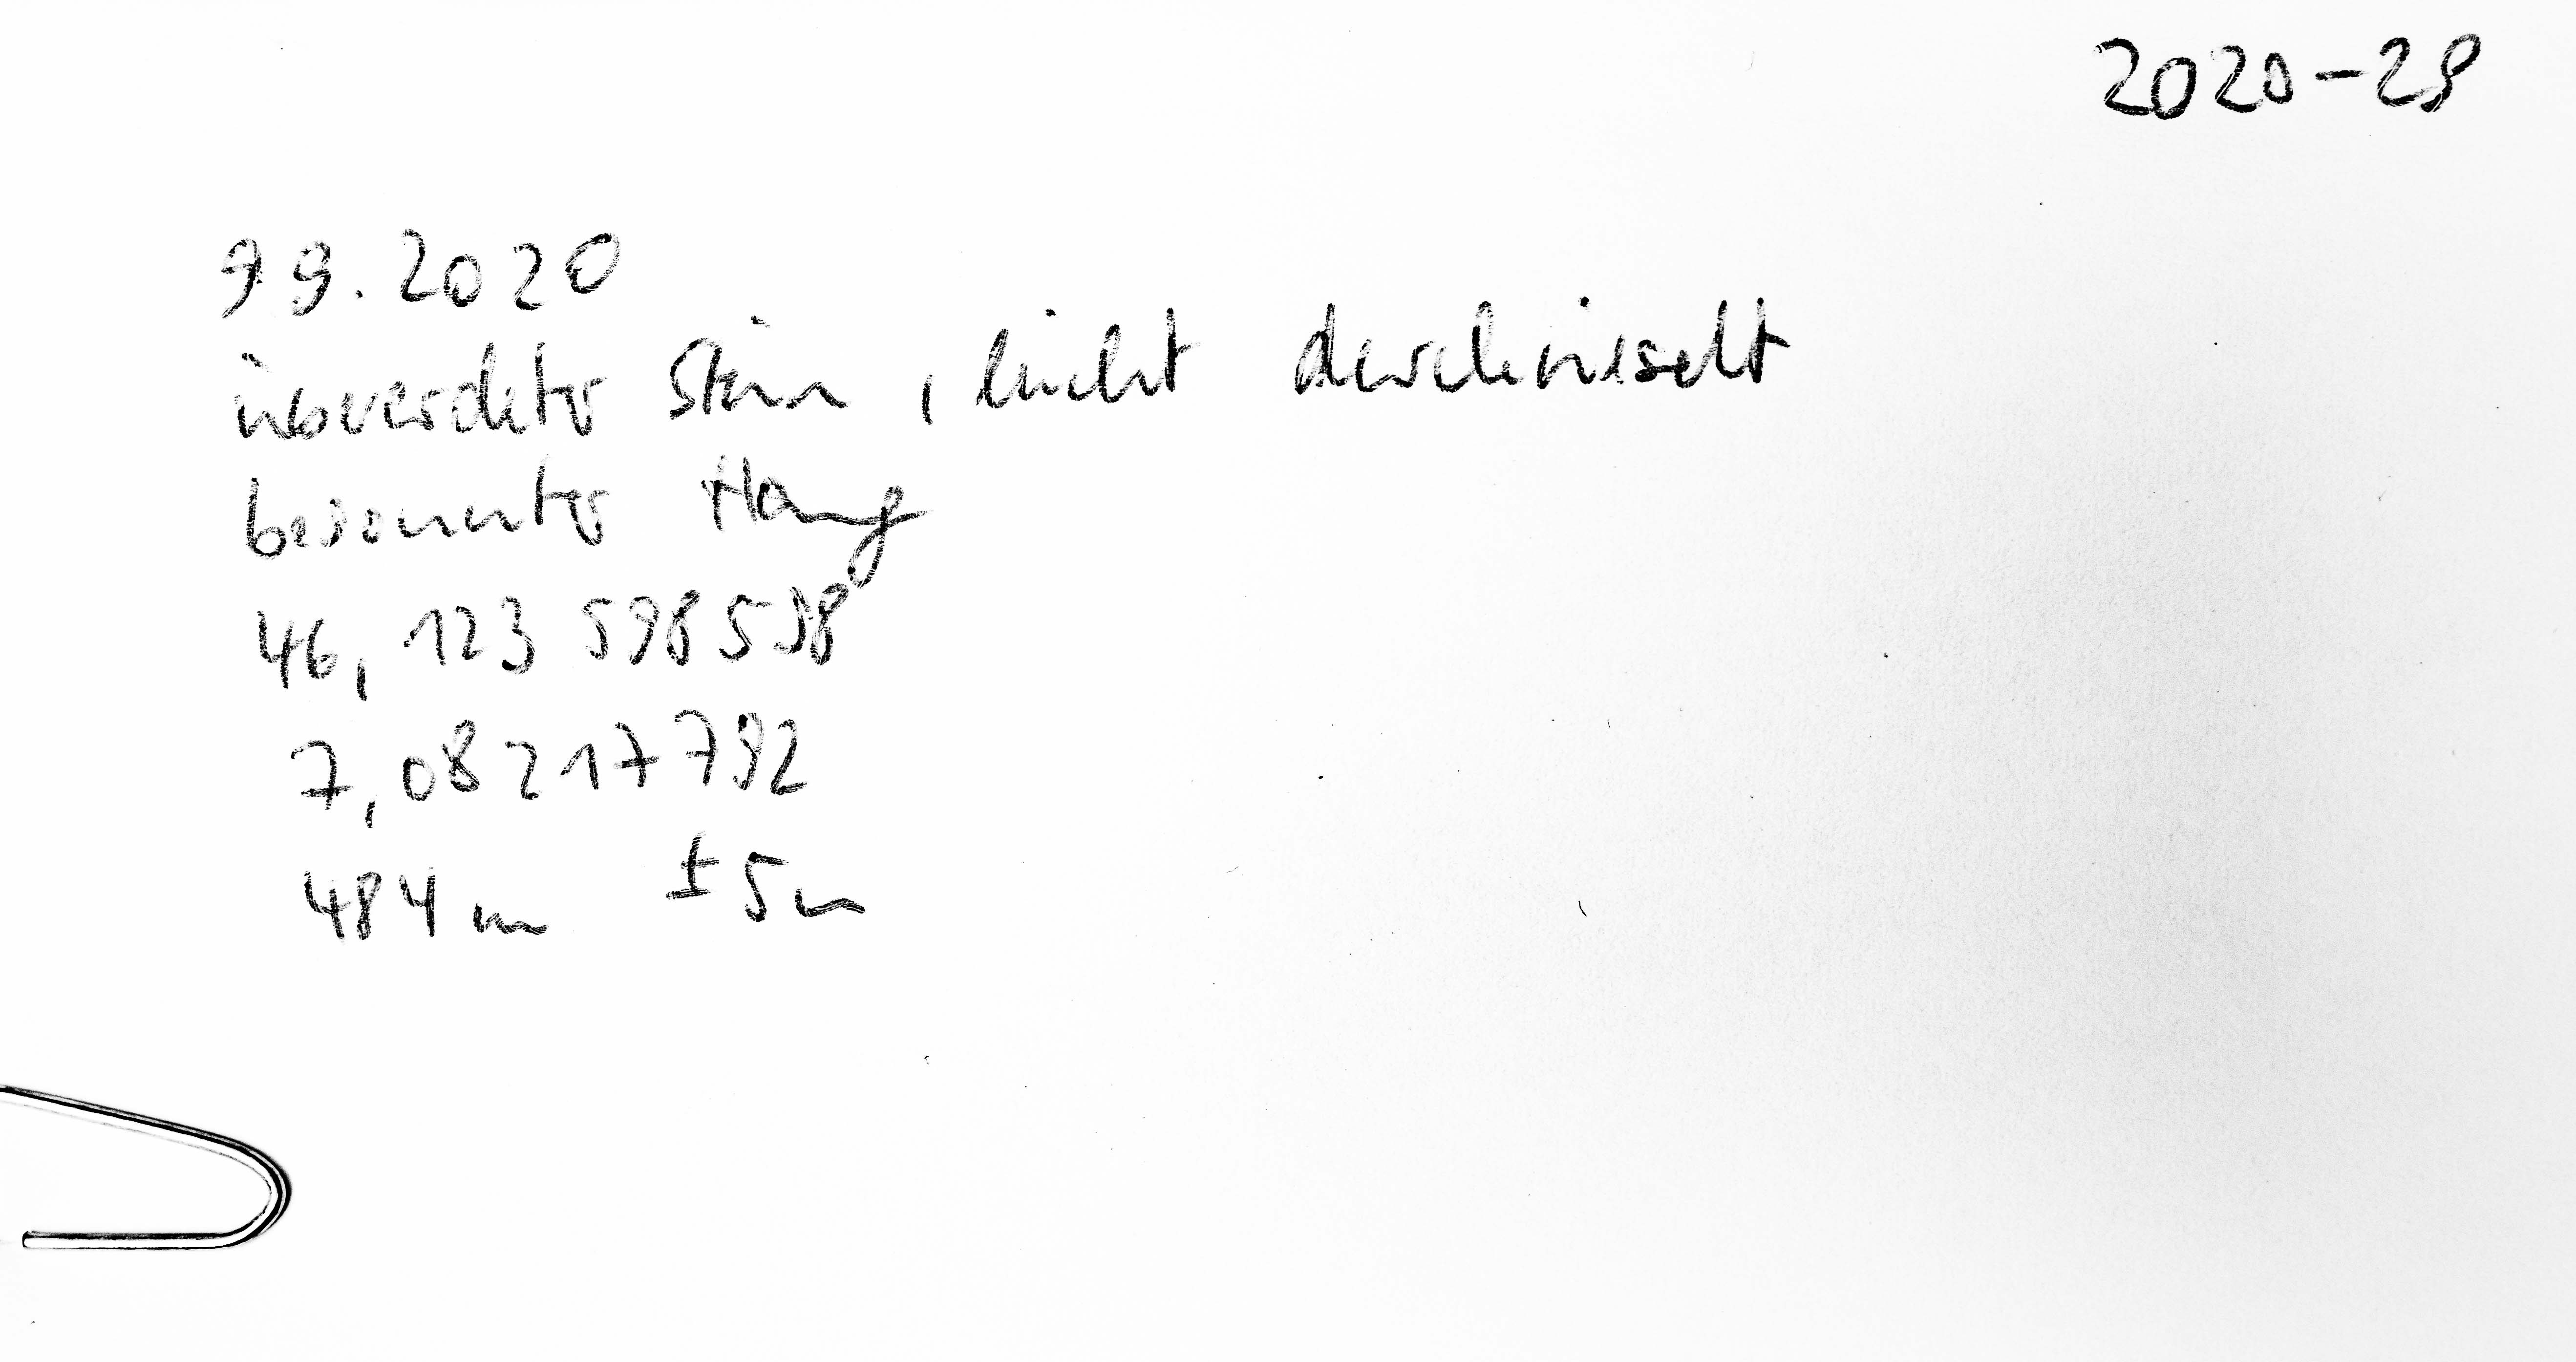 2020-29
9.9.2020
überdeckter Stein, leicht durchrieselt
besonnter Hang
46,123598598
7,08217792
484m ±5m